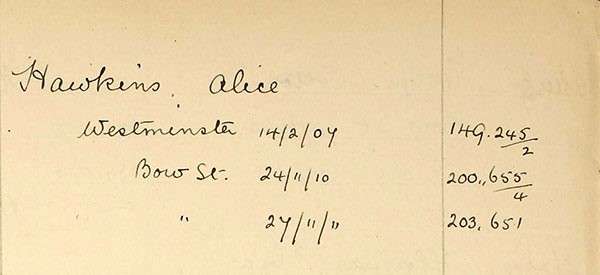 Hawkins, Alice
Westminster 14/2/07 149.245/2
Bow St. 24/11/10 200,655/4
" 27/11/11 203,651